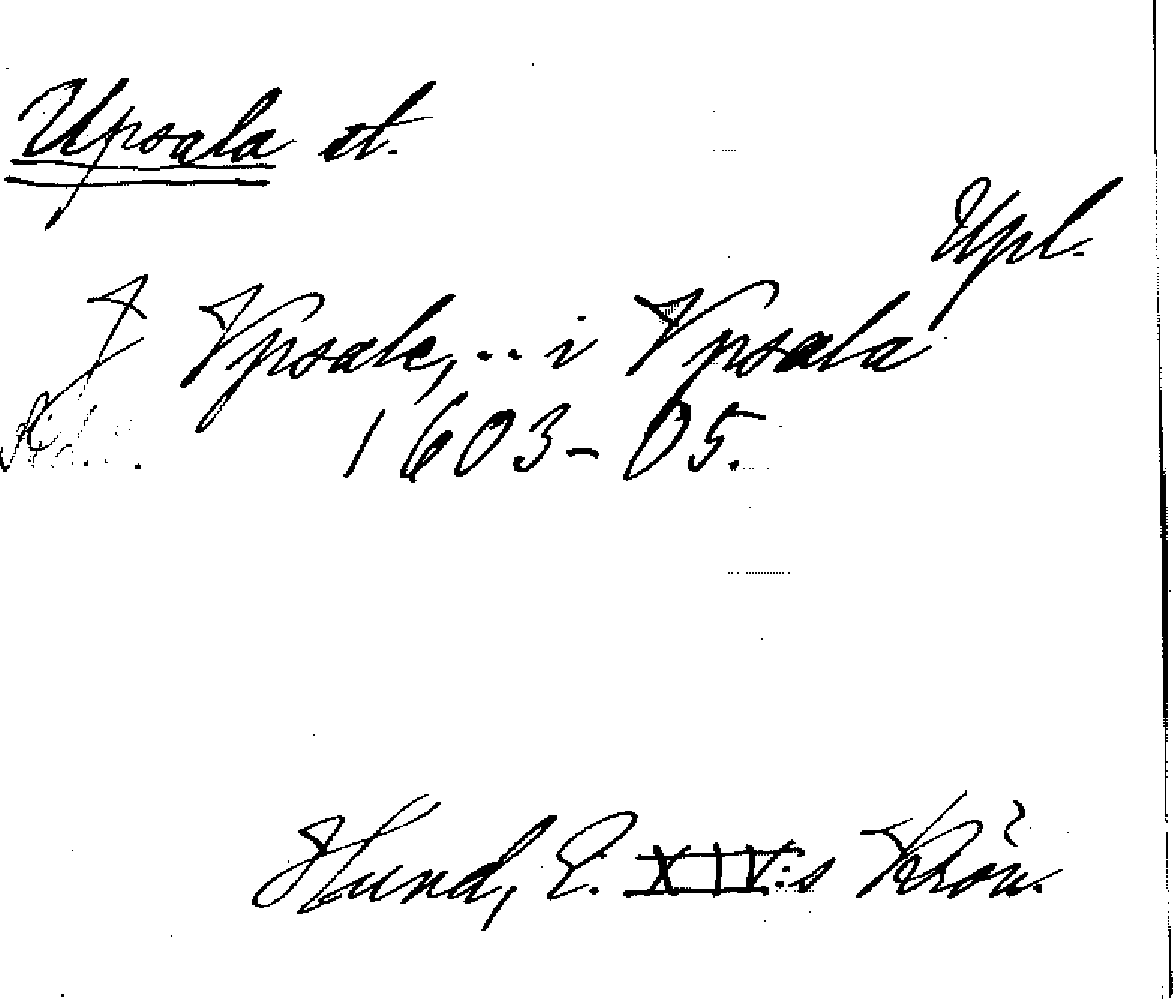 Upsala st.
Upl.
J Vpsale,... i Vpsala
1603-05.
Hund, E. XIV:s Krön.